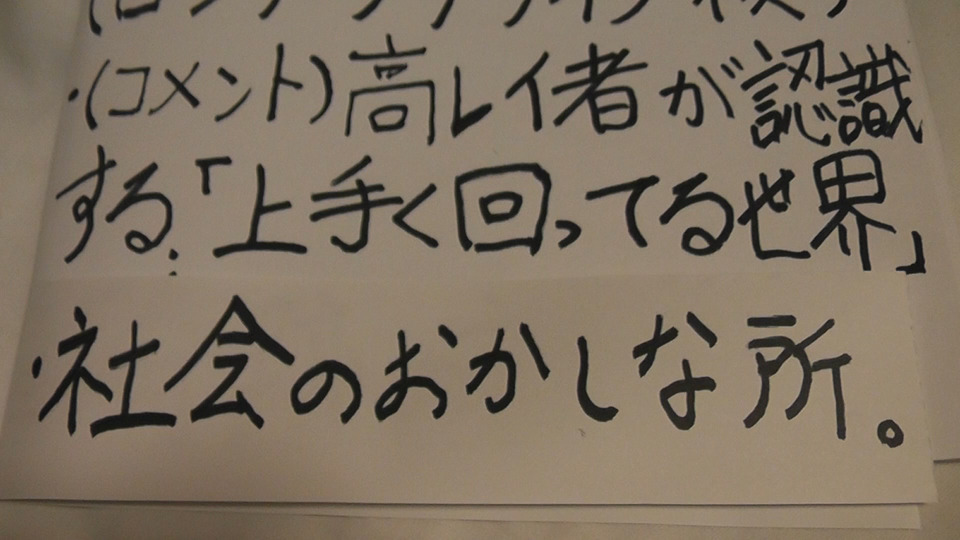 ・(コメント)高レイ者が認識
する「上手く回ってる世界」
・社会のおかしな所。